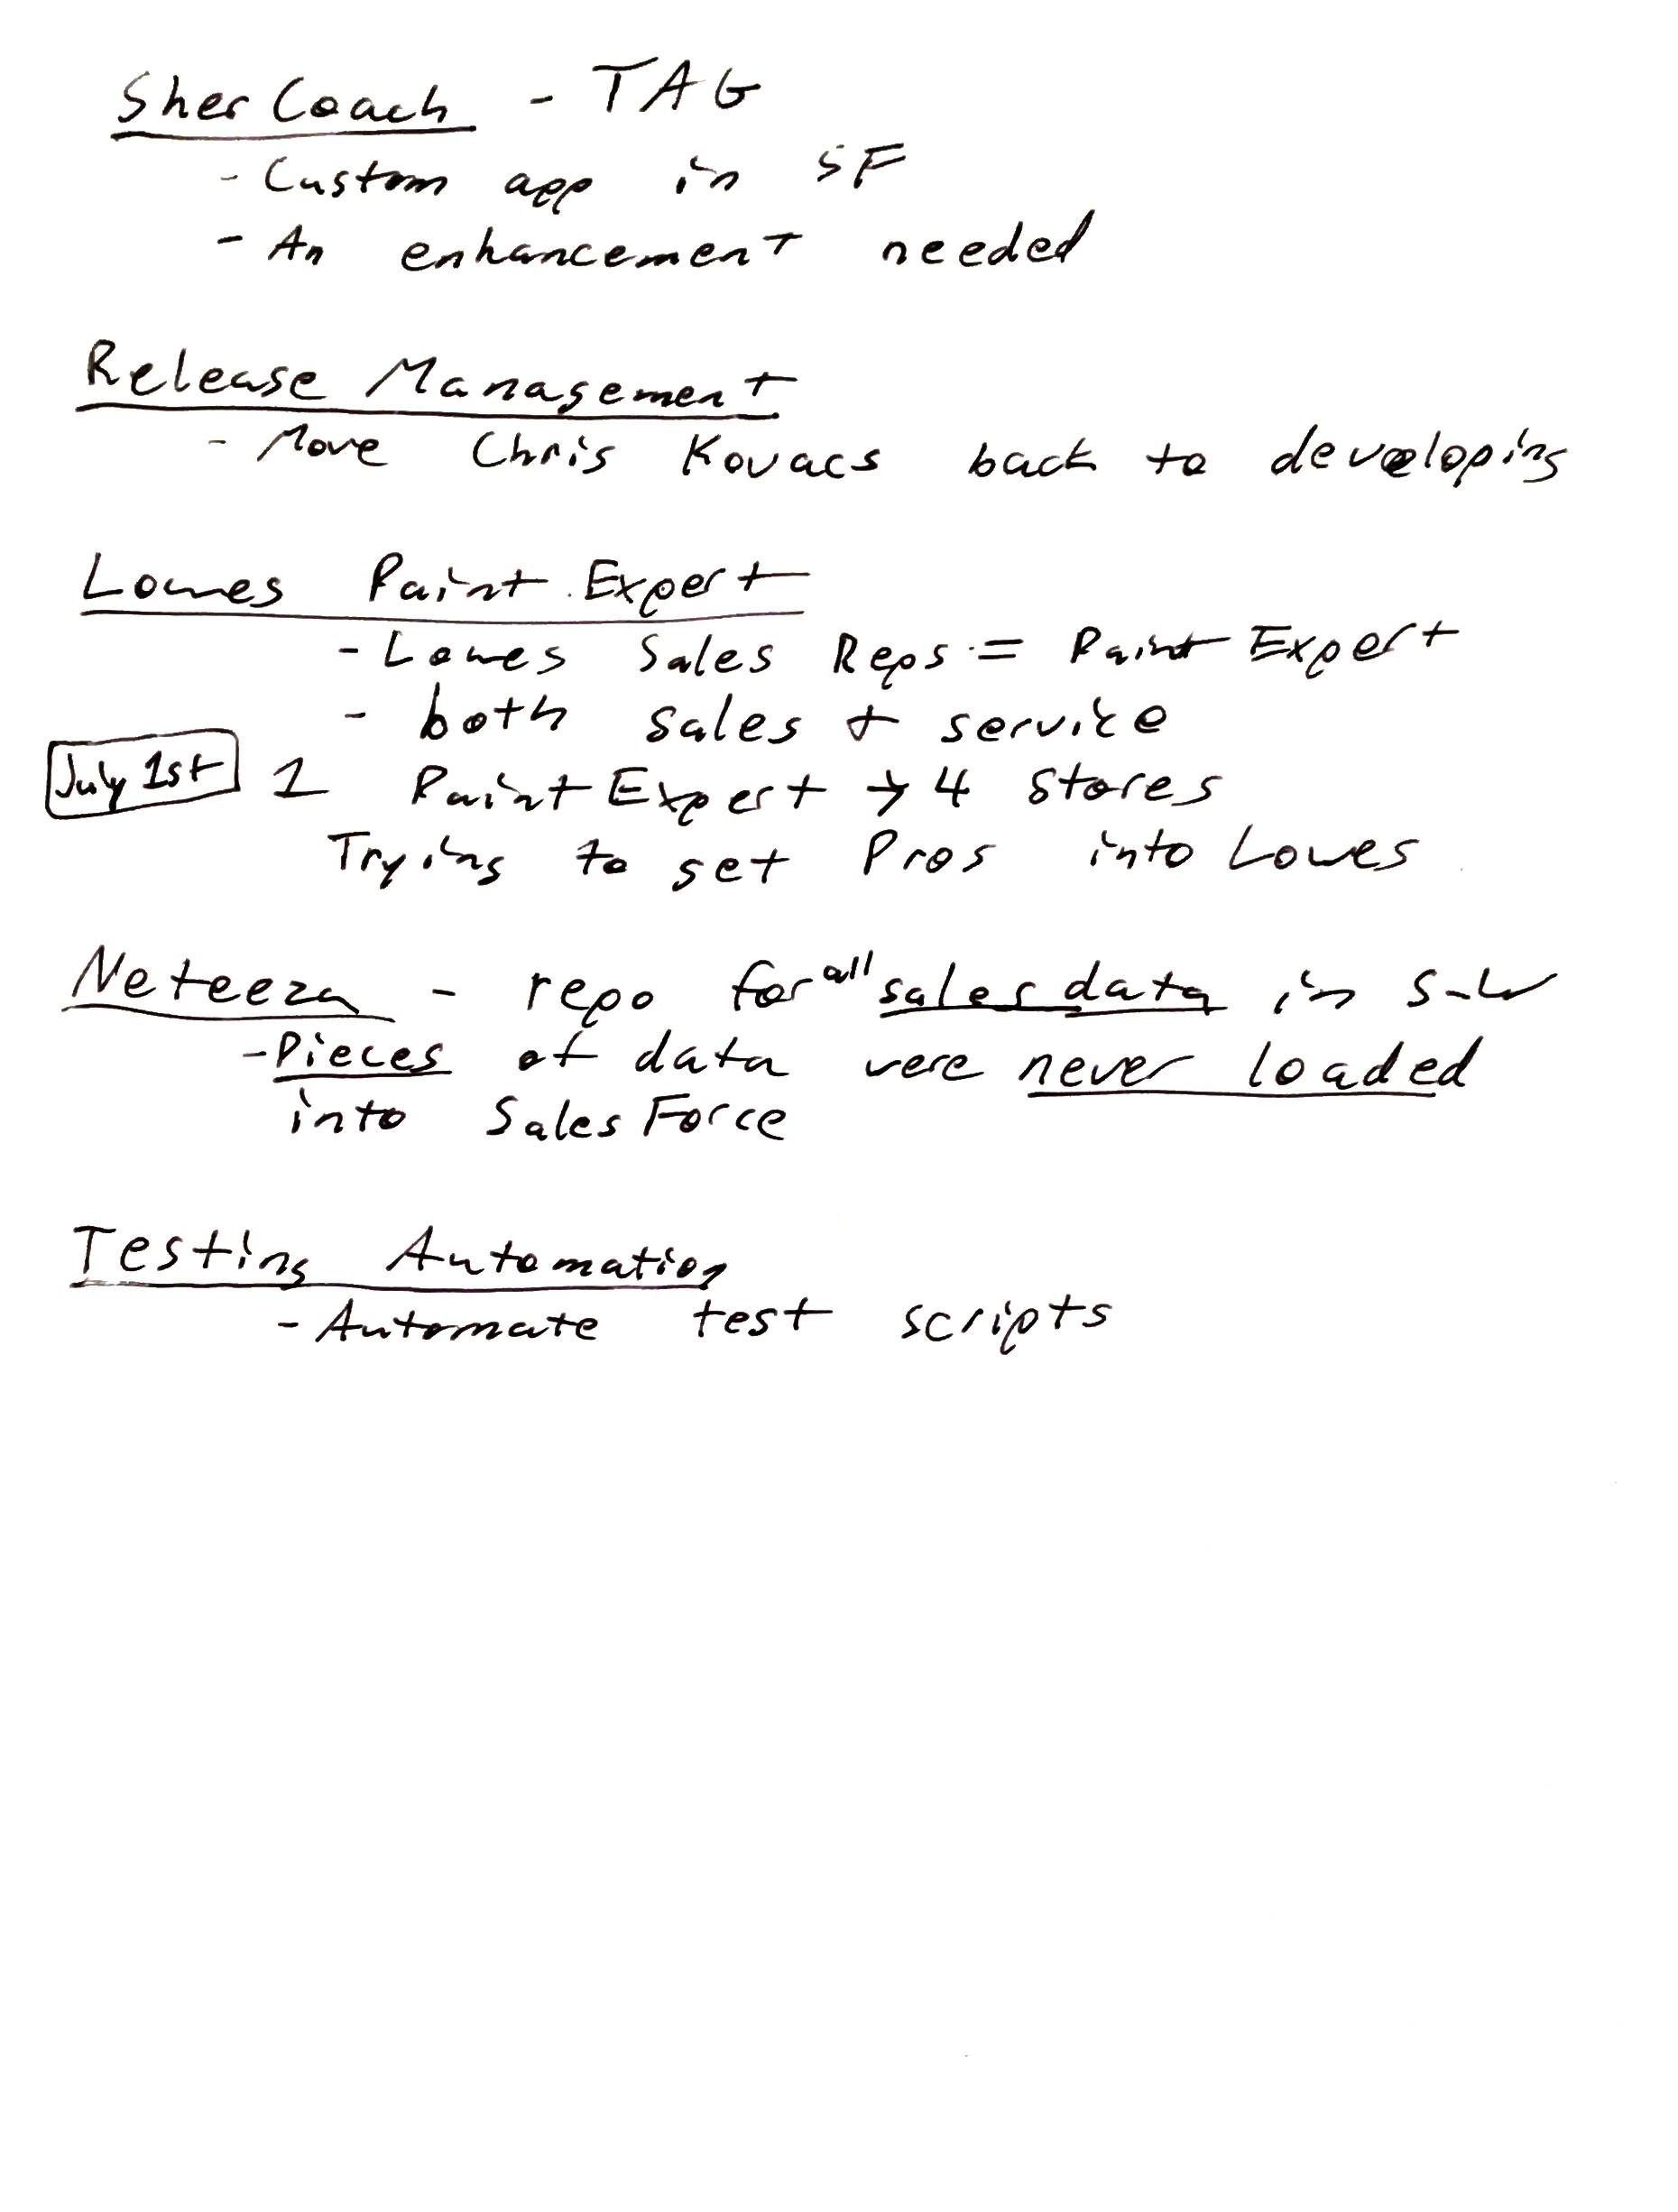 SherCoach - TAG
- Custom app in SF
- An enhancement needed
Release Management
- Move Chris Kovacs back to developing
Lowes Paint Expert
- Lowes Sales Reps = Paint Expert
- both sales + service
July 1st 1 Paint Expert → 4 Stores
Trying to get Pros into Lowes
Neteeza - repo for all sales data in S-W
- Pieces of data were never loaded
into SalesForce
Testing Automation
- Automate test scripts